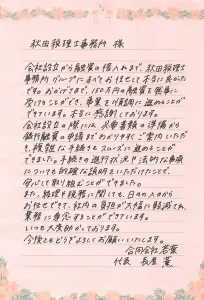 秋田税理士事務所 様
会社設立から融資の借入れまで、税理士
事務所グループにすべてお任せして本当に良かった
です。おかげさまで、150万円の融資を無事に
受けることができ、事業を順調に進めることが
できています。本当に感謝しております。
会社設立の際には、必要書類の準備から
銀行融資の申請までわかりやすくご案内いただ
き、複雑な手続きもスムーズに進めることが
できました。手続きの進行状況や法的な事項
についても的確な説明をいただけたことで、
安心して取り組むことができました。
また、経理や税務に関しても、日々の入力から
お任せできて、社内の負担が大幅に軽減され、
業務に専念することができています。
いつも大変助かっております。
今後ともどうぞよろしくお願いいたします。
合同会社
代表 長屋 薫